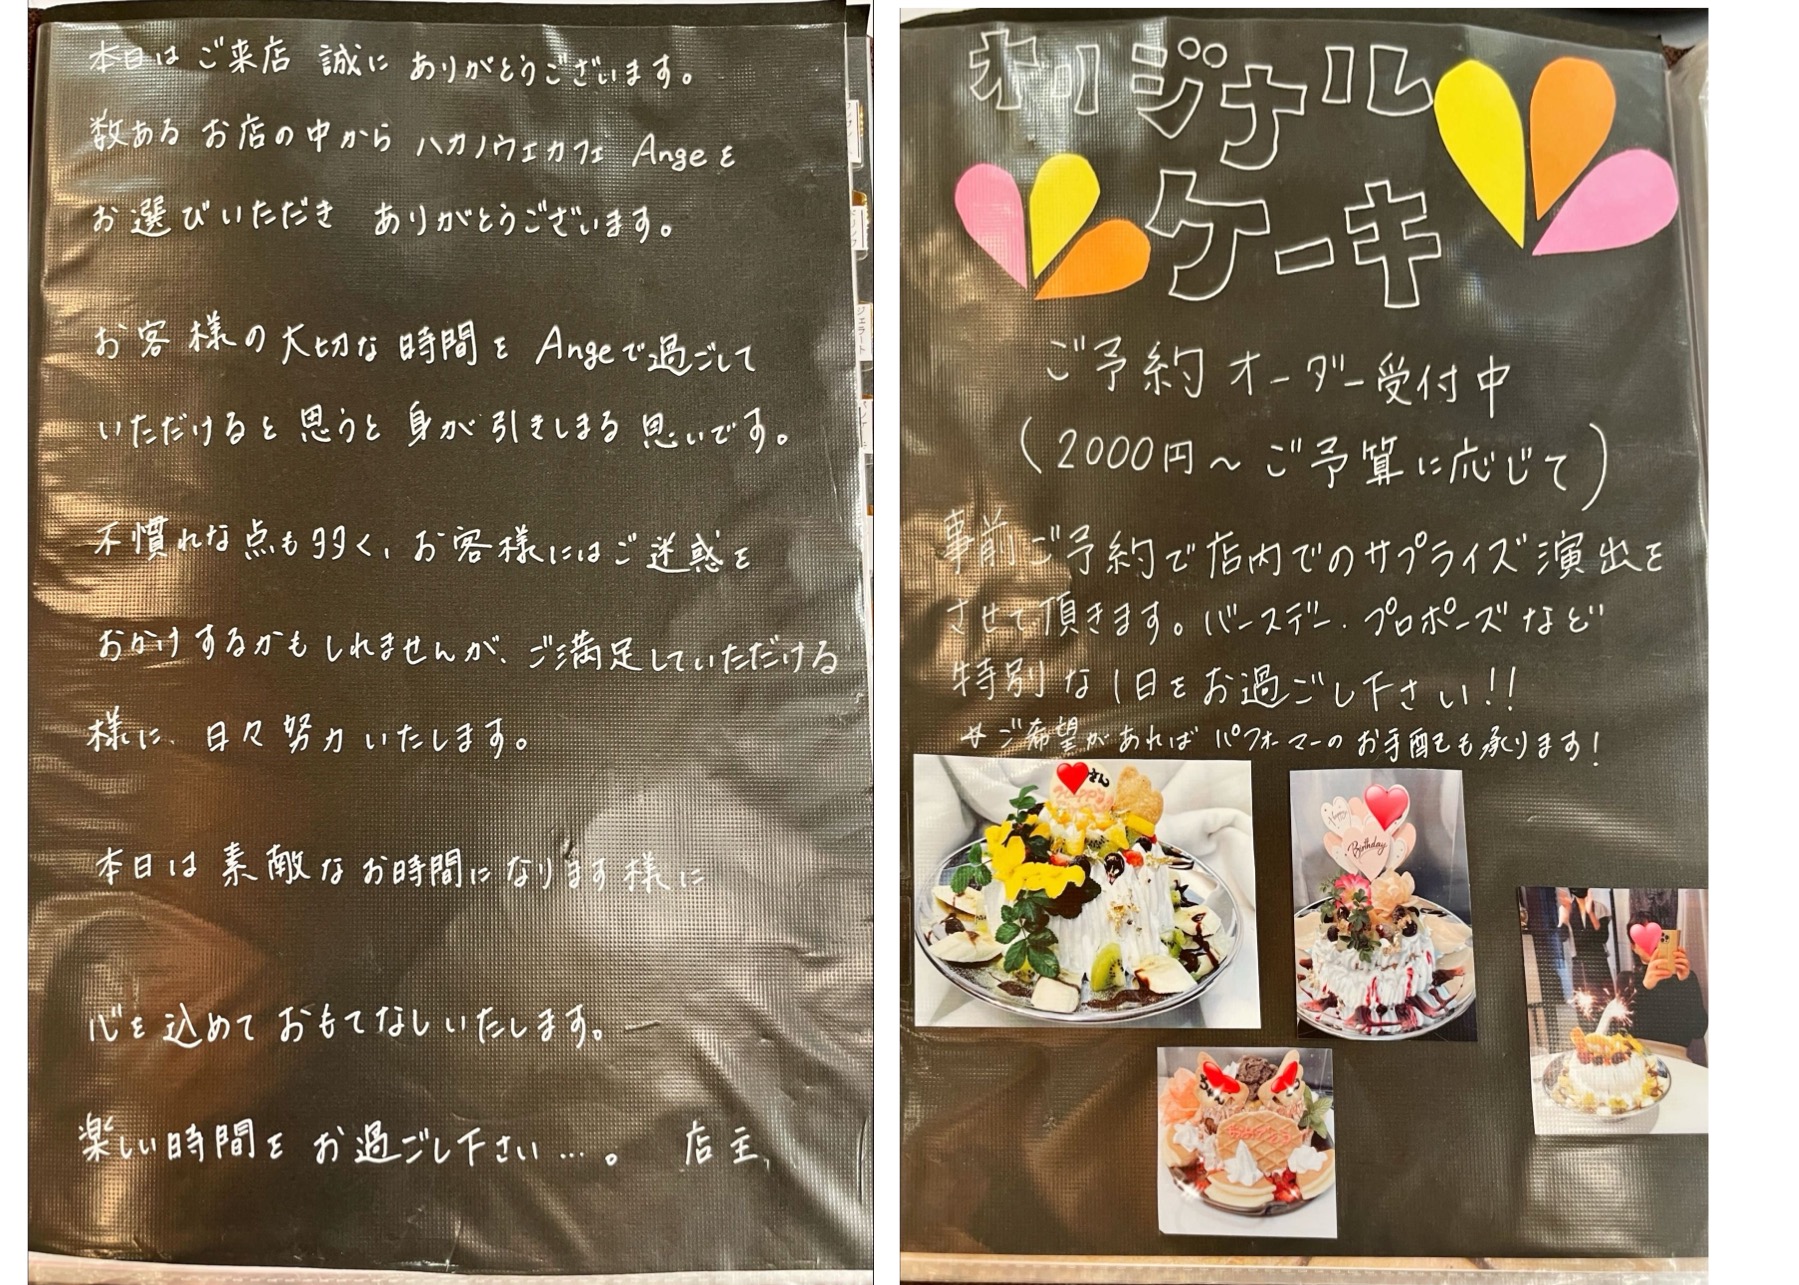 本日は ご来店 誠に ありがとうございます。
数ある お店の中から ハカノウエカフェ Angeを
お選びいただき ありがとうございます。
お客様の大切な時間を Angeで過ごして
いただけると思うと身が引きしまる思いです。
不慣れな点も多く、お客様にはご迷惑を
おかけするかもしれませんが、ご満足していただける
様に、日々努力いたします。
本日は素敵なお時間になります様に
心を込めて おもてなしいたします。
楽しい時間を お過ごし下さい…。 店主
ドリンク
ジェラート
オリジナル
ケーキ
ご予約オーダー受付中
(2000円～ご予算に応じて)
事前ご予約で店内でのサプライズ演出を
させて頂きます。バースデー、プロポーズなど
特別な1日をお過ごし下さい!!
☆ご希望があれば パフォーマーのお手配も承ります!
さん
Happy
Birthday